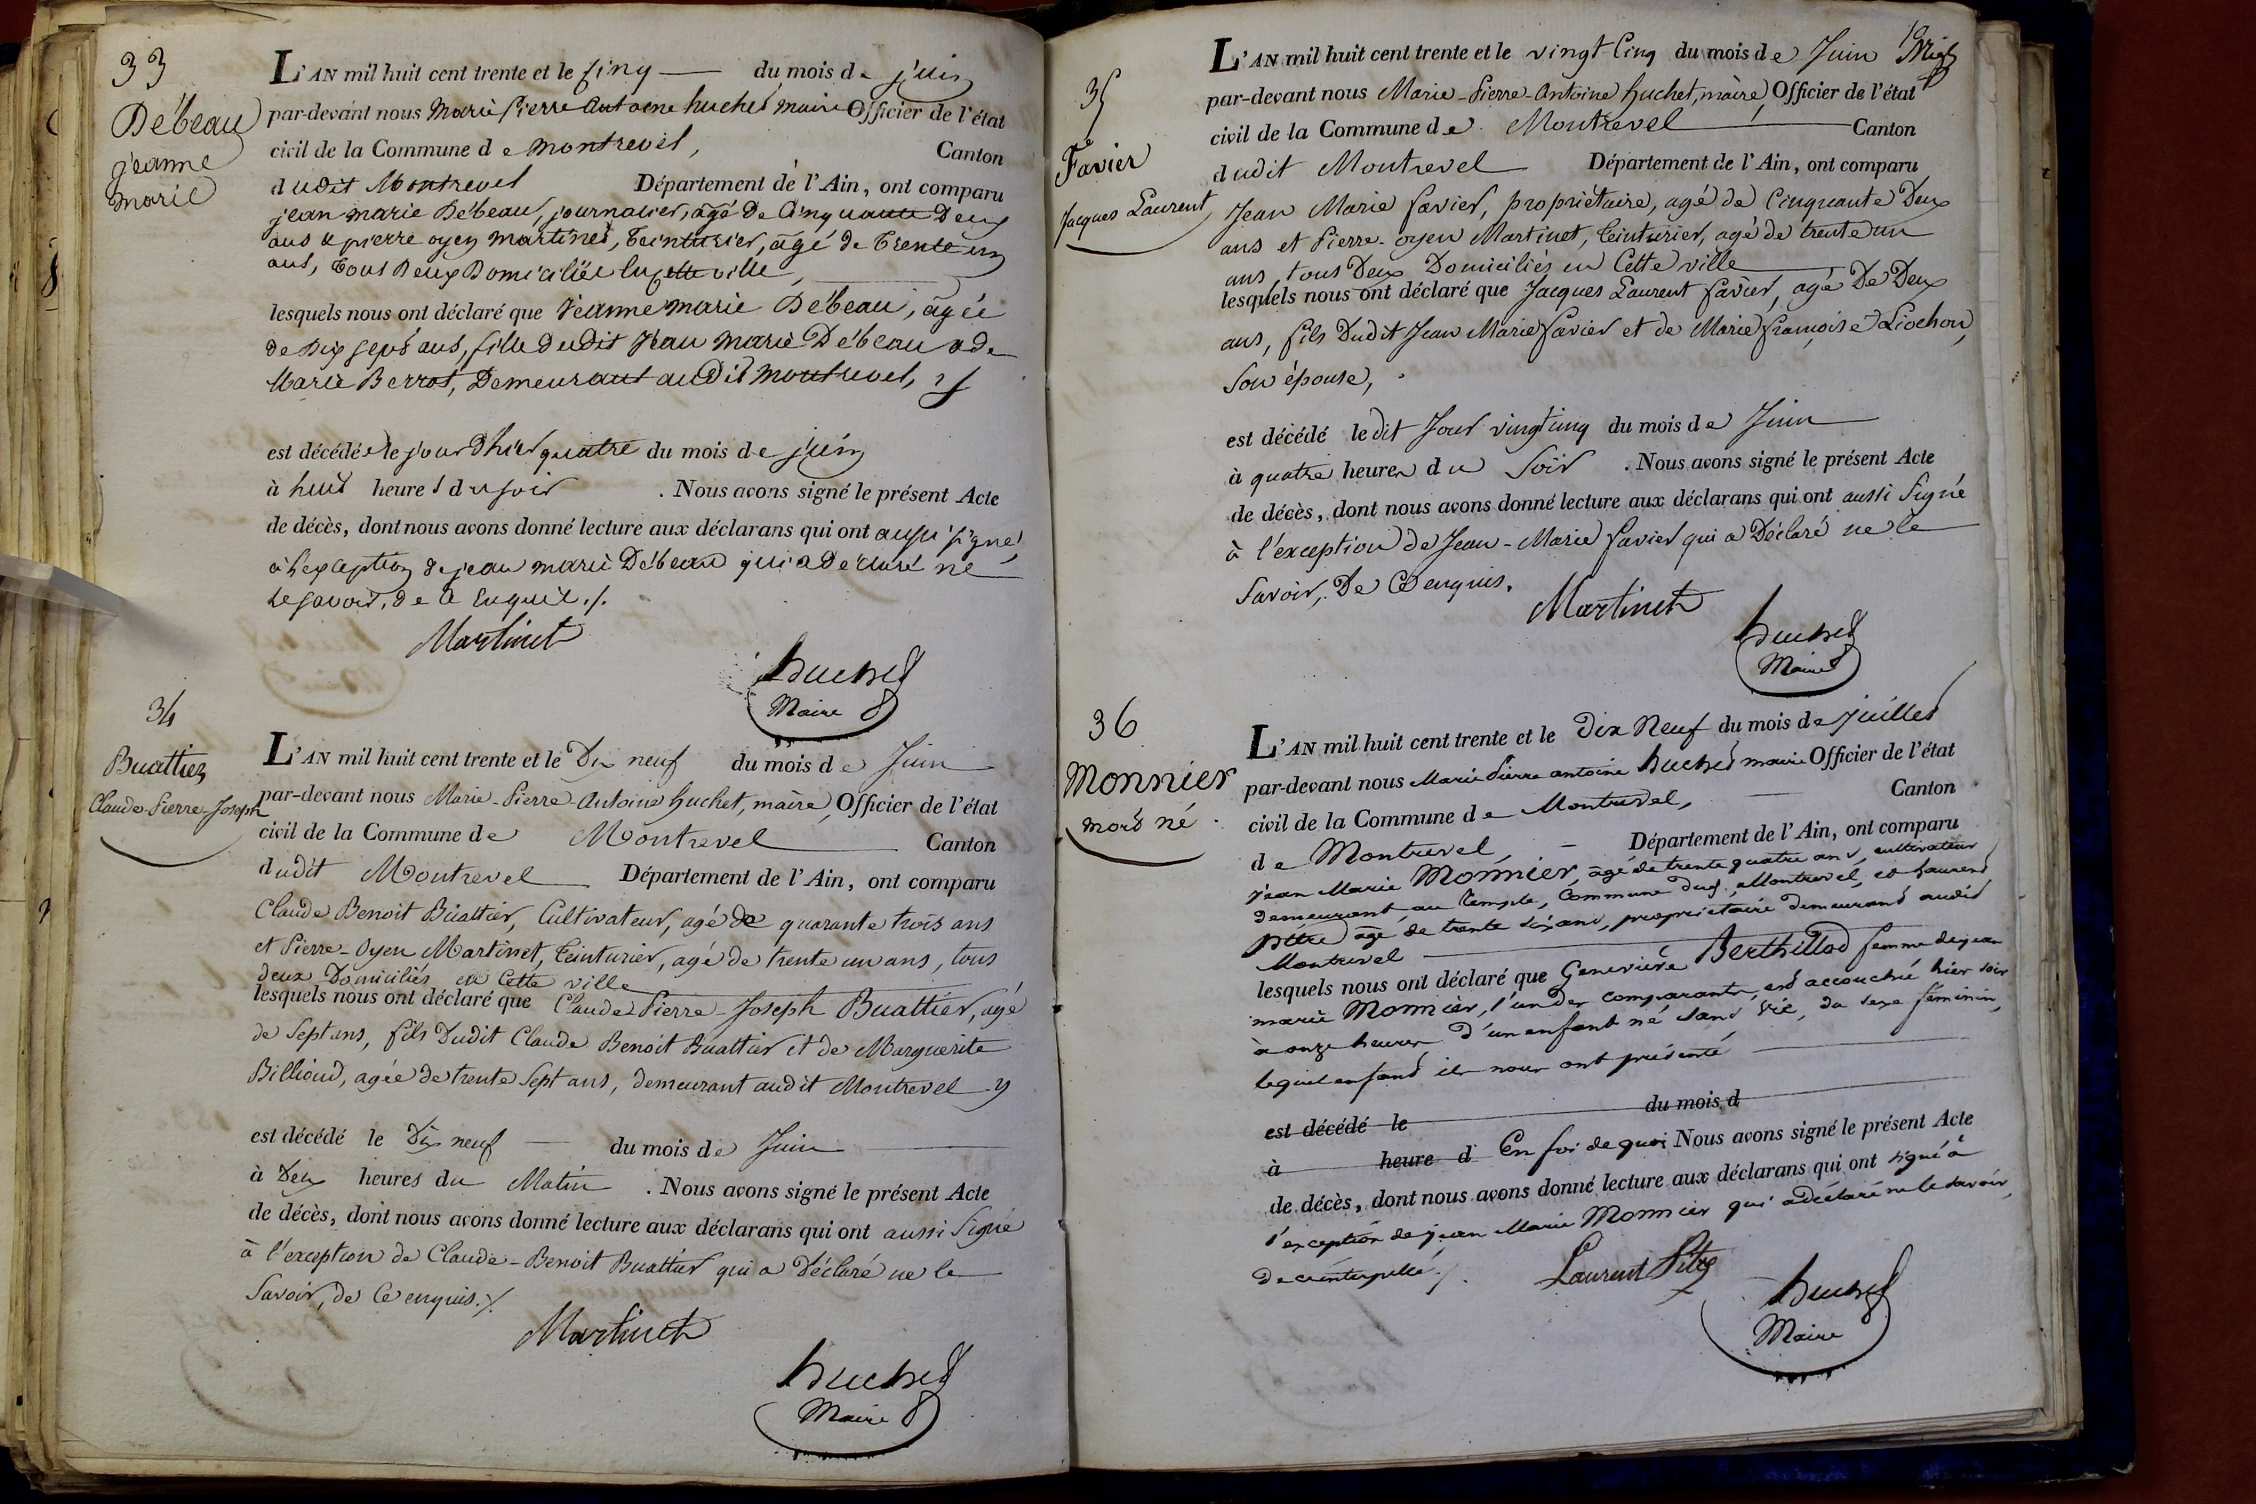 33
Débeau
jeanne
marie
L'AN mil huit cent trente et le cinq du mois de juin
par-devant nous Marie pierre Antoine huchet maire Officier de l'état
civil de la Commune de montrevel, Canton
dudit Montrevel Département de l'Ain, ont comparu
jean marie Débeau, journalier, âgé de Cinquante Deux
ans & pierre oyen martinet, teinturier, âgé de trente un
ans, tous Deux Domiciliés en cette ville,
lesquels nous ont déclaré que Jeanne marie Débeau, âgée
de dix sept ans, fille dudit Jean Marie Débeau & de
Marie Berrot, Demeurant audit montrevel,
est décédée le jour d'hier quatre du mois de juin
à huit heures du soir . Nous avons signé le présent Acte
de décès, dont nous avons donné lecture aux déclarans qui ont aussi signé
à l'exception de jean marie Débeau qui a déclaré ne
le savoir, de ce enquis ./.
Martinet
huchet
Maire
34
Buattier
Claude-Pierre-Joseph
L'AN mil huit cent trente et le Dix neuf du mois de Juin
par-devant nous Marie-Pierre-Antoine huchet, maire, Officier de l'état
civil de la Commune de Montrevel Canton
dudit Montrevel Département de l'Ain, ont comparu
Claude Benoit Buattier, Cultivateur, agé de quarante trois ans
et Pierre-Oyen Martinet, teinturier, agé de trente un ans, tous
deux Domiciliés en Cette ville
lesquels nous ont déclaré que Claude Pierre-Joseph Buattier, agé
de Sept ans, fils Dudit Claude Benoit Buattier et de Marguerite
Billioud, agée de trente Sept ans, demeurant audit Montrevel
est décédé le Dix neuf du mois de Juin
à Deux heures du Matin . Nous avons signé le présent Acte
de décès, dont nous avons donné lecture aux déclarans qui ont aussi Signé
à l'exception de Claude-Benoit Buattier qui a Déclaré ne le
Savoir, de Ce enquis. /.
Martinet
huchet
Maire
35
Favier
Jacques Laurent
L'AN mil huit cent trente et le vingt-Cinq du mois de Juin
par-devant nous Marie-Pierre-Antoine huchet, maire, Officier de l'état
civil de la Commune de Montrevel Canton
dudit Montrevel Département de l'Ain, ont comparu
Jean Marie favier, propriétaire, agé de Cinquante Deux
ans et Pierre-oyen Martinet, teinturier, agé de trente un
ans, tous Deux Domiciliés en Cette ville
lesquels nous ont déclaré que Jacques Laurent favier, agé De Deux
ans, fils Dudit Jean Marie favier et de Marie françoise Liochon,
Son épouse,
est décédé ledit Jour vingt cinq du mois de Juin
à quatre heures du Soir . Nous avons signé le présent Acte
de décès, dont nous avons donné lecture aux déclarans qui ont aussi Signé
à l'exception de Jean-Marie favier qui a Déclaré ne le
Savoir, De Ce enquis.
Martinet
huchet
Maire
36
Monnier
mort né
L'AN mil huit cent trente et le Dix Neuf du mois de Juillet
par-devant nous Marie Pierre antoine huchet maire Officier de l'état
civil de la Commune de Montrevel, Canton
de Montrevel Département de l'Ain, ont comparu
Jean Marie Monnier, âgé de trente quatre ans, cultivateur
demeurant au Temple, Commune dud. Montrevel, et Laurent
Pitre âgé de trente six ans, propriétaire demeurant audit
Montrevel
lesquels nous ont déclaré que Geneviève Berthillod femme de jean
marie Monnier, l'un des comparants, est accouchée hier soir
à onze heures d'un enfant né sans vie, du sexe féminin,
lequel enfant ils nous ont présenté
est décédé le du mois d
à heure d En foi de quoi Nous avons signé le présent Acte
de décès, dont nous avons donné lecture aux déclarans qui ont signé à
l'exception de jean Marie Monnier qui a déclaré ne le savoir
de ce interpellé ./.
Laurent Pitre
huchet
Maire